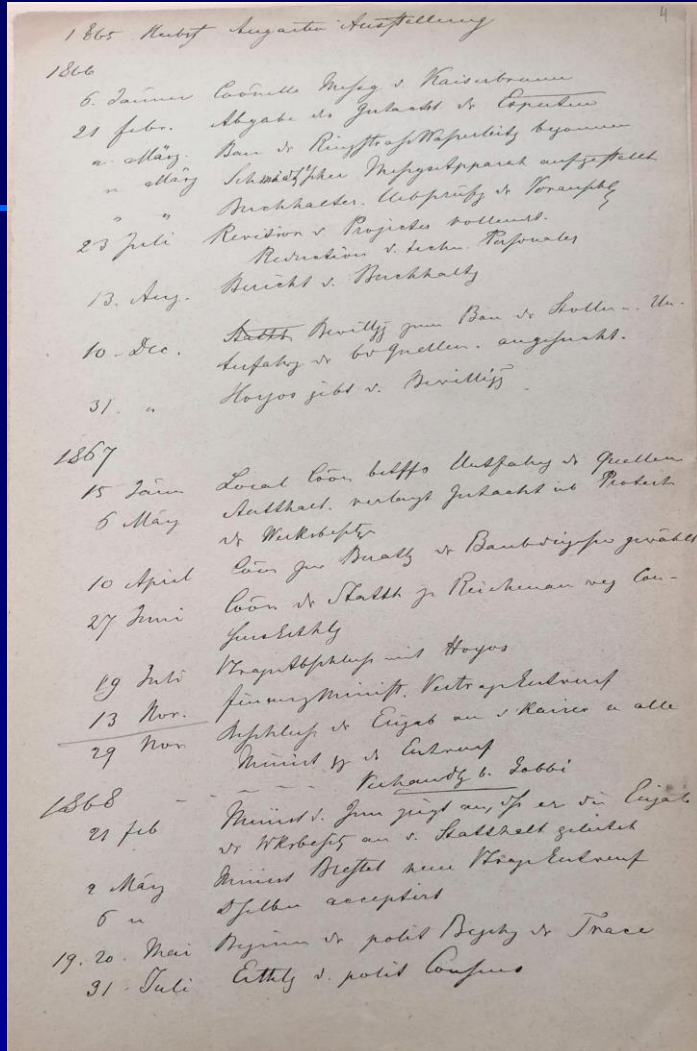 4
1865 Herbst Augarten Ausstellung
1866
6. Jänner Coönelle Messg v Kaiserbrunn
21 febr. Abgabe des Gutacht der Experten
a. März. Bau der Ringstrass Wasserleitg begonnen
" März Schmidt'scher Messgs Apparat aufgestellt
" " Buchhalter. Uebprüfg der Voranschlg
23 Juli Revision d Projectes vollendt.
Reduction d. techn. Personales
13. Aug. Bericht d. Buchhaltg
10. Dec. Statth Bewillgg zum Bau der Stollen u. Un-
terfahrg der bd Quellen. angesucht.
31. " Hoyos gibt d. Bewilligg
1867
15 Jänn Local Cöon betffs Untfahrg der Quellen
6 März Statthalt. verlangt Gutacht üb Protest
der Werksbesitzr
10 April Cöon zur Berathg der Baubedignisse gewählt
27 Juni Cöon der Statth zu Reichenau weg Con-
sensErthlg
19 Juli VtragsAbschluss mit Hoyos
13 Nov. Finanzminist. VertragsEntwurf
29 Nov Beschluss der Eingab an d Kaiser u alle
Minist gg den Entwurf
Verhandlg b. Zobbi
1868
21 feb Minist d. Inn zeigt an, dss er die Eingab
der Wksbesitz an d. Statthalt geleitet
2 März Minist Brestel neuer VtragsEntwurf
6 " Dselbe acceptirt
19. 20. Mai Beginn der polit Begehg der Trace
31. Juli Erthlg d. polit Consens